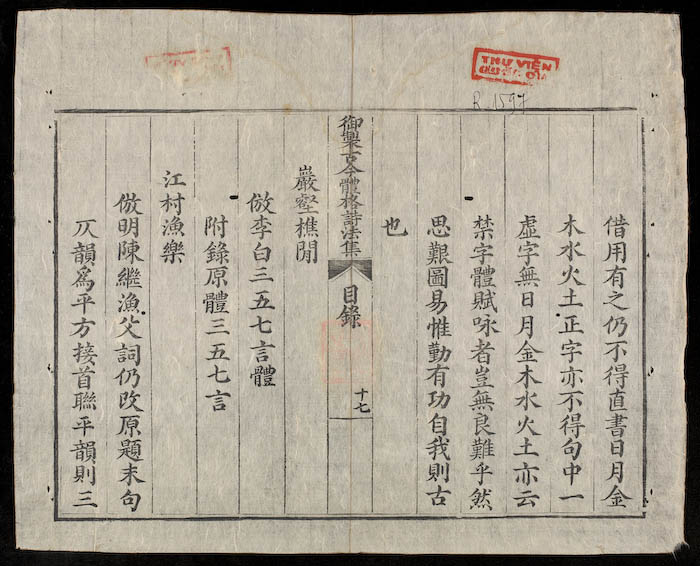 借用有之仍不得直書日月金
木水火土正字亦不得句中一
虛字無日月金木水火土亦云
禁字體賦咏者豈無良難乎然
思艱圖易惟勤有功自我則古
也
御製古今體格詩法集
目錄
十七
巖壑樵閒
倣李白三五七言體
附錄原體三五七言
江村漁樂
倣明陳繼漁父詞仍改原題末句
仄韻為平方接首聯平韻則三
THƯ VIỆN
R.1597